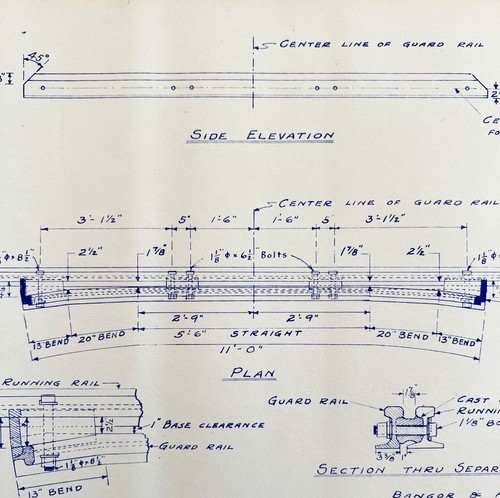 45°
CENTER LINE OF GUARD RAIL
3"
2"
CE
FO
SIDE ELEVATION
CENTER LINE OF GUARD RAIL
3'-1½" 5" 1'-6" 1'-6" 5 3'-1½"
⅛"ϕ×8½" 2½" 1⅞" 1⅛"ϕ × 6½" Bolts 1⅞" 2½" 1⅛"ϕ
2'-9" 2'-9"
13" BEND 20" BEND 5'-6" STRAIGHT 20" BEND 13" BEND
11'-0"
PLAN
RUNNING RAIL
GUARD RAIL
1⅞"
CAST
RUNNIN
1⅛" BO
2½"
1" BASE CLEARANCE
GUARD RAIL
1⅛"ϕ×8½"
3⅜"
13" BEND
SECTION THRU SEPAR
BANGOR &